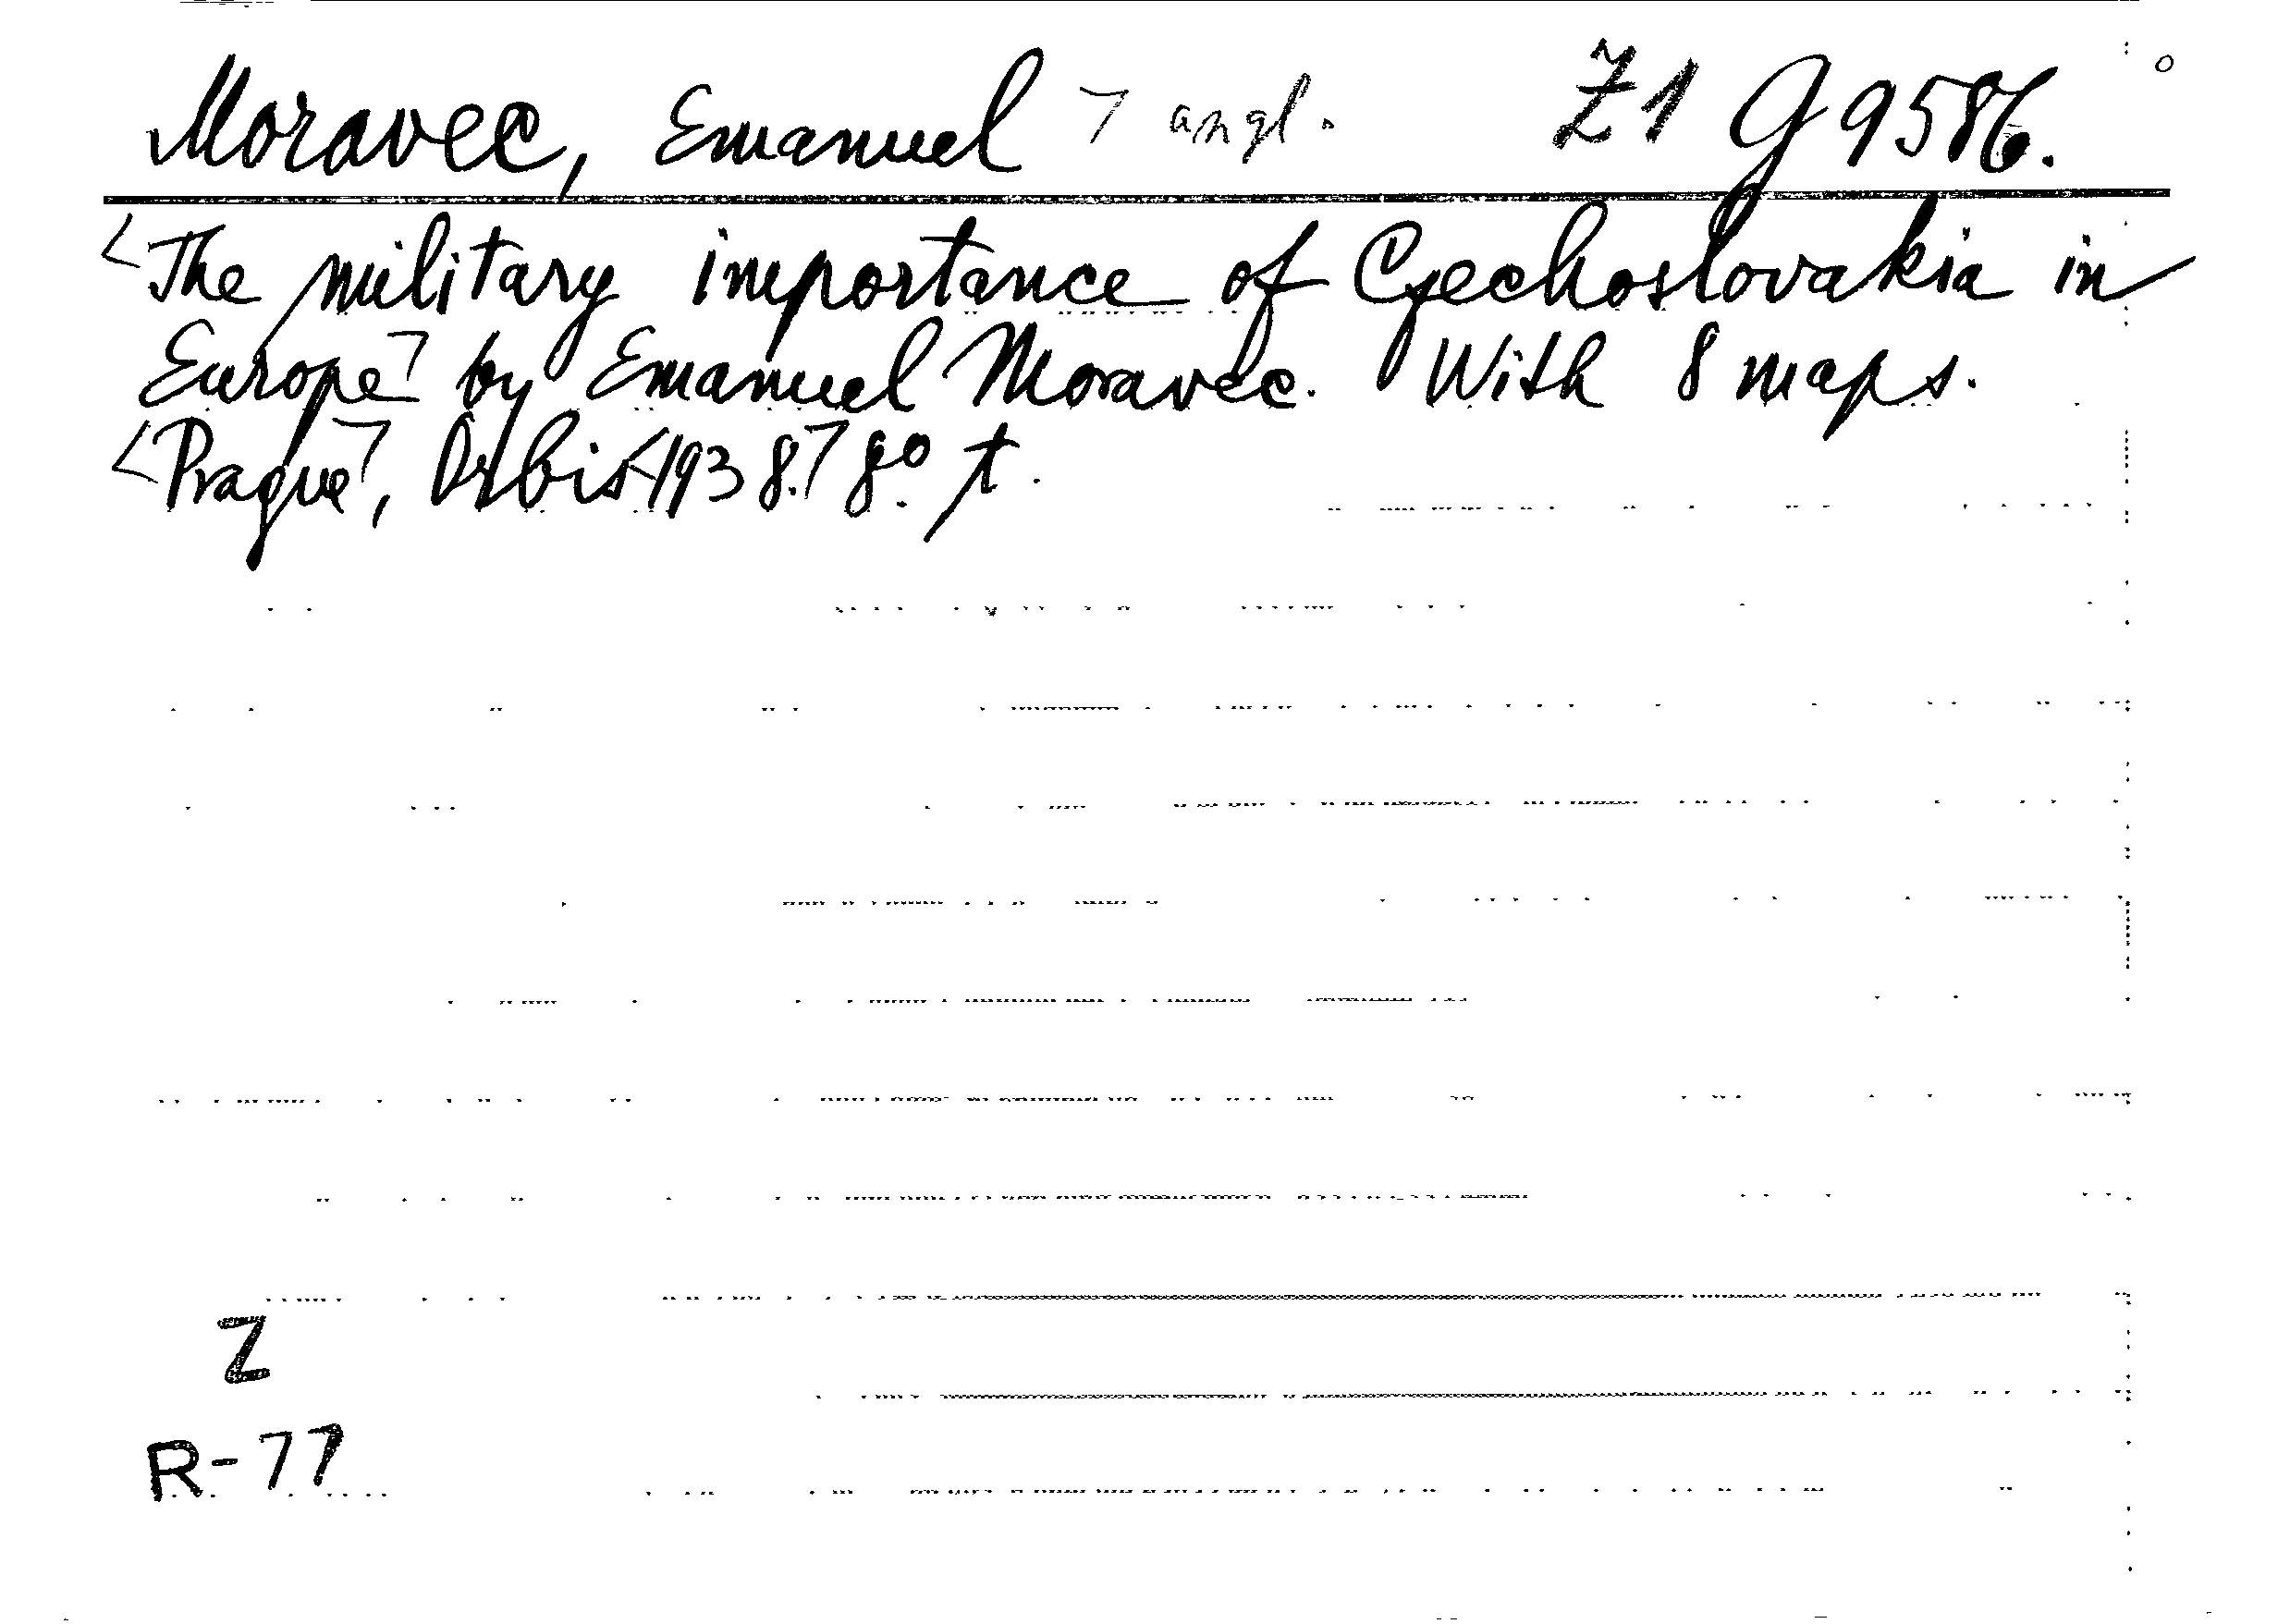 Moravec, Emanuel ⁊ angl. Z1 G 9586.
<The military importance of Czechoslovakia in
Europe⁊ by Emanuel Moravec. With 8 maps.
<Prague⁊, Orbis <1938.⁊ 8°. t.
Z
R-77